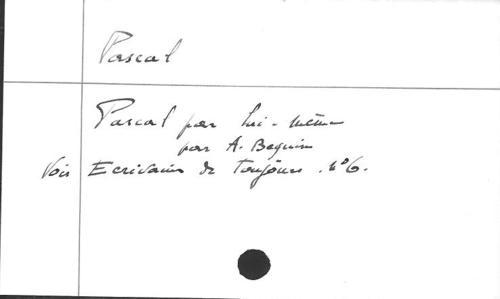 Pascal
Pascal par lui-même
par A. Beguin
Voir Ecrivains de Toujours. N°6.